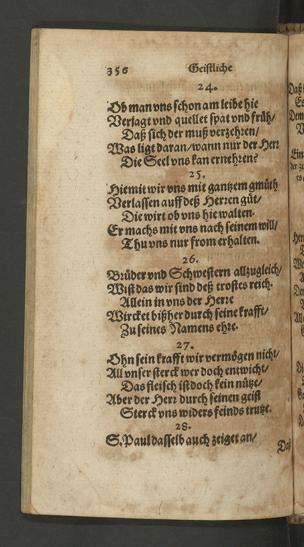 356 Geistliche
24.
Ob man vns schon am leibe hie
Verjagt vnd quellet spat vnd früh/
Daß sich der muß verzehren/
Was ligt daran/wann nur der Herr
Die Seel vns kan ernehren?
25.
Hiemit wir vns mit gantzem gmüth
Verlassen auff deß Herren güt/
Die wirt ob vns hie walten.
Er machs mit vns nach seinem will/
Thu vns nur from erhalten.
26.
Brüder vnd Schwestern allzugleich/
Wißt das wir sind deß trostes reich.
Allein in vns der Herre
Wircket bißher durch seine krafft/
Zu seines Namens ehre.
27.
Ohn sein krafft wir vermögen nicht/
All vnser sterck wer doch entwicht/
Das fleisch ist doch kein nütze/
Aber der Herr durch seinen geist
Sterck vns widers feinds trutze.
28.
S. Paul dasselb auch zeiget an/